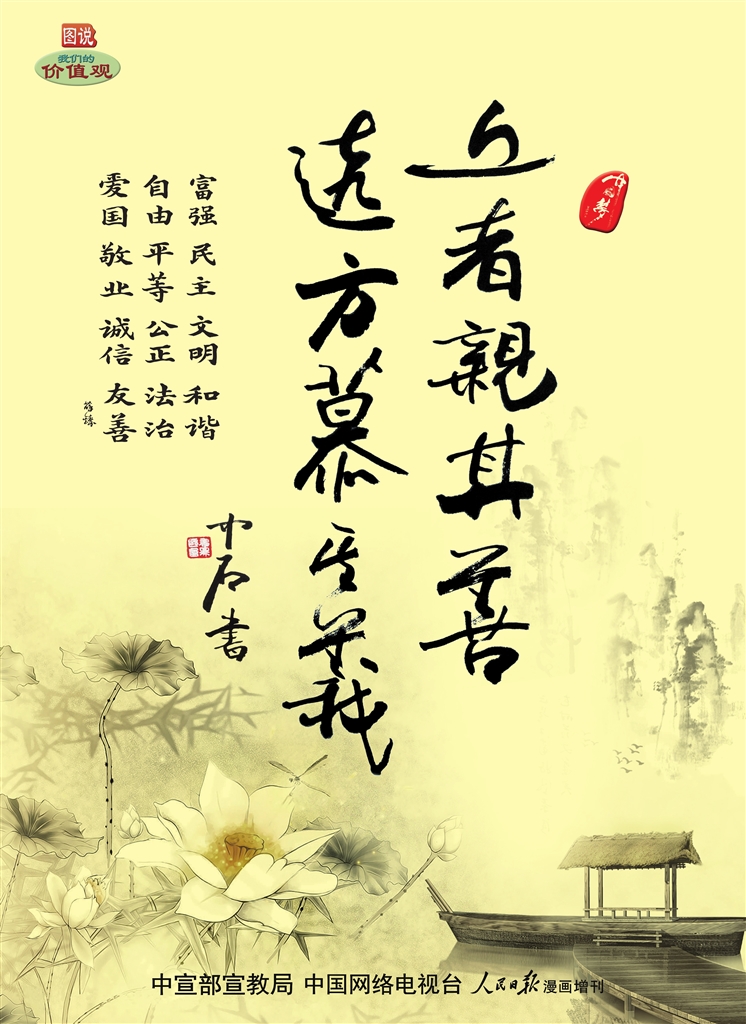 图说
我们的
价值观
中国梦
近者親其善
遠方慕其義
富强 民主 文明 和谐
自由 平等 公正 法治
爱国 敬业 诚信 友善
中石书
中宣部宣教局 中国网络电视台 人民日报 漫画增刊